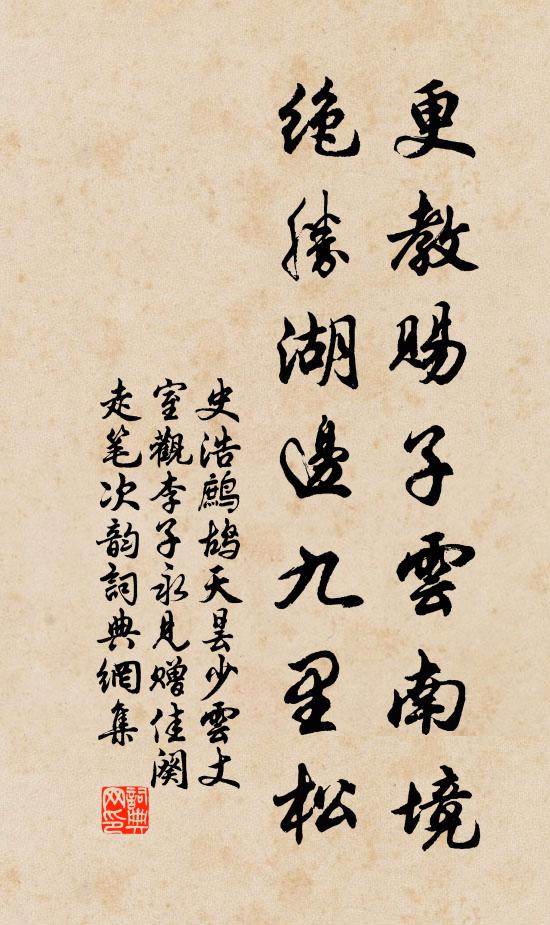 更教賜子雲南境
絶勝湖邊九里松
史浩鷓鴣天曇少雲丈
室觀李子永見贈佳闋
走笔次韵詞典網集
詞典網印